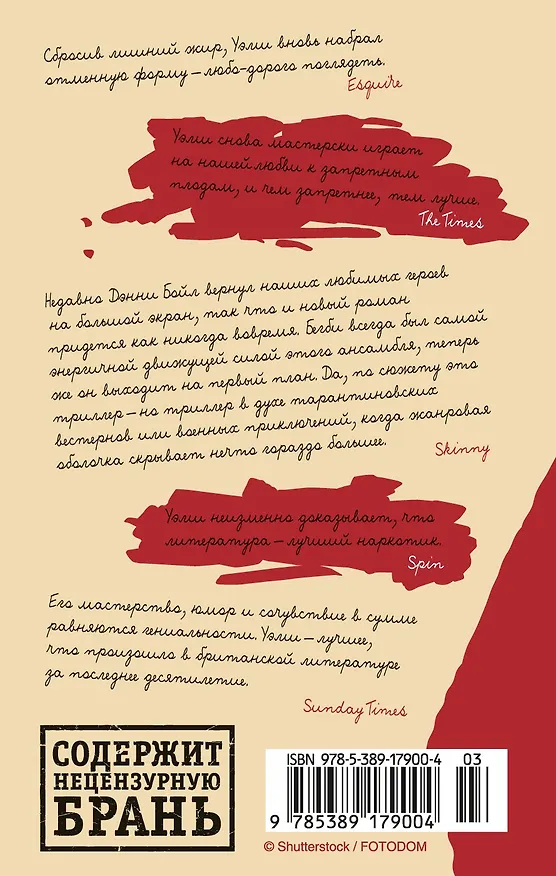 Сбросив лишний жир, Уэлш вновь набрал
отменную форму — любо-дорого поглядеть.
Esquire
Уэлш снова мастерски играет
на нашей любви к запретным
плодам, и чем запретнее, тем лучше.
The Times
Недавно Дэнни Бойл вернул наших любимых героев
на большой экран, так что и новый роман
придется как никогда вовремя. Бегби всегда был самой
энергичной движущей силой этого ансамбля, теперь
же он выходит на первый план. Да, по сюжету это
триллер — но триллер в духе тарантиновских
вестернов или военных приключений, когда жанровая
оболочка скрывает нечто гораздо большее.
Skinny
Уэлш неизменно доказывает, что
литература — лучший наркотик.
Spin
Его мастерство, юмор и сочувствие в сумме
равняются гениальности. Уэлш — лучшее,
что произошло в британской литературе
за последнее десятилетие.
Sunday Times
СОДЕРЖИТ
НЕЦЕНЗУРНУЮ
БРАНЬ
ISBN 978-5-389-17900-4 03
9 785389 179004
© Shutterstock / FOTODOM